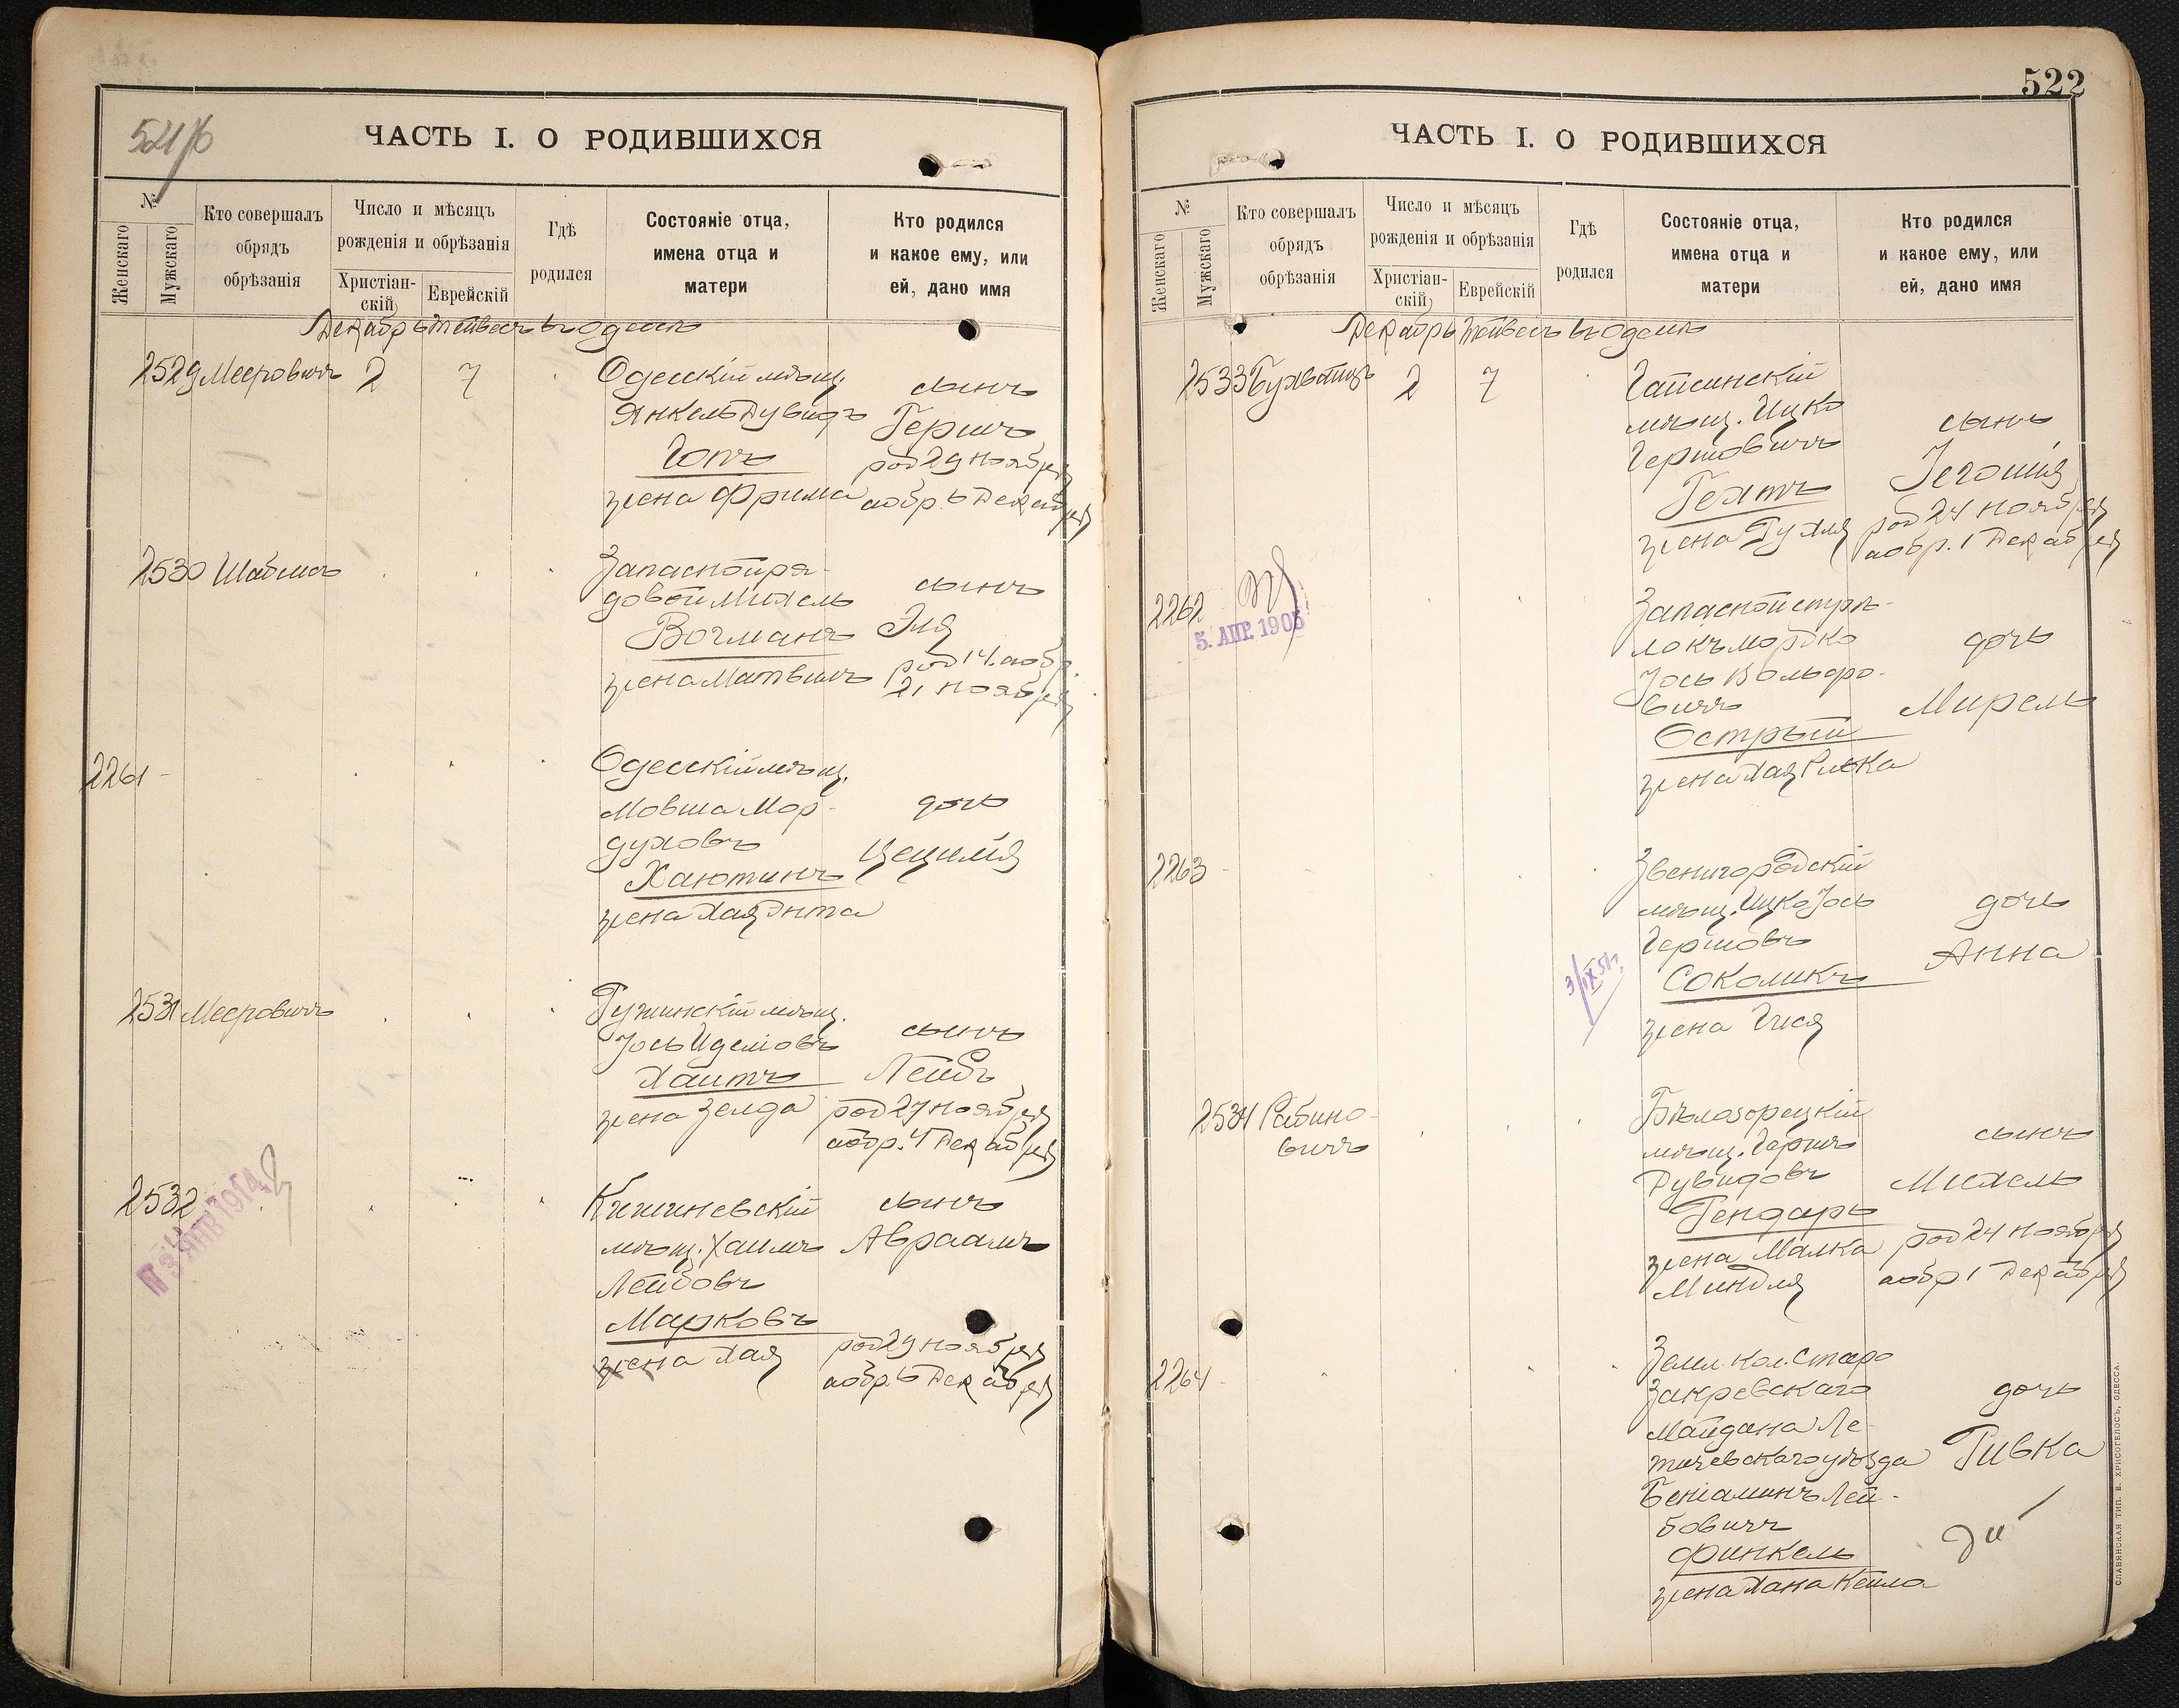 ЧАСТЬ I. О РОДИВШИХСЯ
№
Женскаго
Мужскаго
Кто совершалъ
обрядъ
обрѣзанія
Число и мѣсяцъ
рожденія и обрѣзанія
Христіан-
скій
Еврейскій
Гдѣ
родился
Состояніе отца,
имена отца и
матери
Кто родился
и какое ему, или
ей, дано имя
Декабрь Тейвесъ въ Одессѣ
2529 Мееровичъ 2 7
Одесскій мѣщ.
Янкель Дувидъ
жена Фрима
сынъ
Гершъ
род 29 ноября
аобр. 6 Декабря
2530
Запасной ря-
довой Михель
Вогманъ
сынъ
Эля
род 14. аобр
21 ноября
2261
Одесскій мѣщ.
Мовша Мор-
духовъ
Хаютинъ
жена Хая Энта
дочь
Цецилія
2531 Мееровичъ
Ружинскій мѣщ.
Хаитъ
жена Зелда
сынъ
Лейбъ
род 27 ноября
аобр. 4 Декабря
2532
Кишиневскій
мѣщ. Хаимъ
Лейбовъ
Марковъ
жена Хая
сынъ
Авраамъ
род 29 ноября
аобр. 6 Декабря
522
ЧАСТЬ I. О РОДИВШИХСЯ
№
Женскаго
Мужскаго
Кто совершалъ
обрядъ
обрѣзанія
Число и мѣсяцъ
рожденія и обрѣзанія
Христіан-
скій
Еврейскій
Гдѣ
родился
Состояніе отца,
имена отца и
матери
Кто родился
и какое ему, или
ей, дано имя
Декабрь Тейвесъ въ Одессѣ
2533 2 7
Гайсинскій
мѣщ. Ицко
Гершовичъ
Гехтъ
жена Рухля
сынъ
род 24 ноября
аобр. 1 Декабря
2262
5. АПР. 1905
Запасной стрѣ-
локъ Мордко
Іось Вольфо-
вичъ
Острый
жена Хая Ривка
дочь
Мирель
2263
3/IX 51г.
Звенигородскій
мѣщ. Ицко Іось
Гершовъ
Соколикъ
жена Гися
дочь
Анна
2534 Рабино-
вичъ
Бѣлозорецкій
мѣщ. Гершъ
Дувидовъ
Гендарь
жена Малка
Миндля
сынъ
Михель
род 24 ноября
аобр 1 Декабря
2264
Земл. кол. Старо
Закревскаго
Майдана Ле-
тичевскаго уѣзда
Беніаминъ Лей-
бовичъ
Финкель
жена Хана Кейла
дочь
Ривка
СЛАВЯНСКАЯ ТИП. Е. ХРИСОГЕЛОСЪ, ОДЕССА.